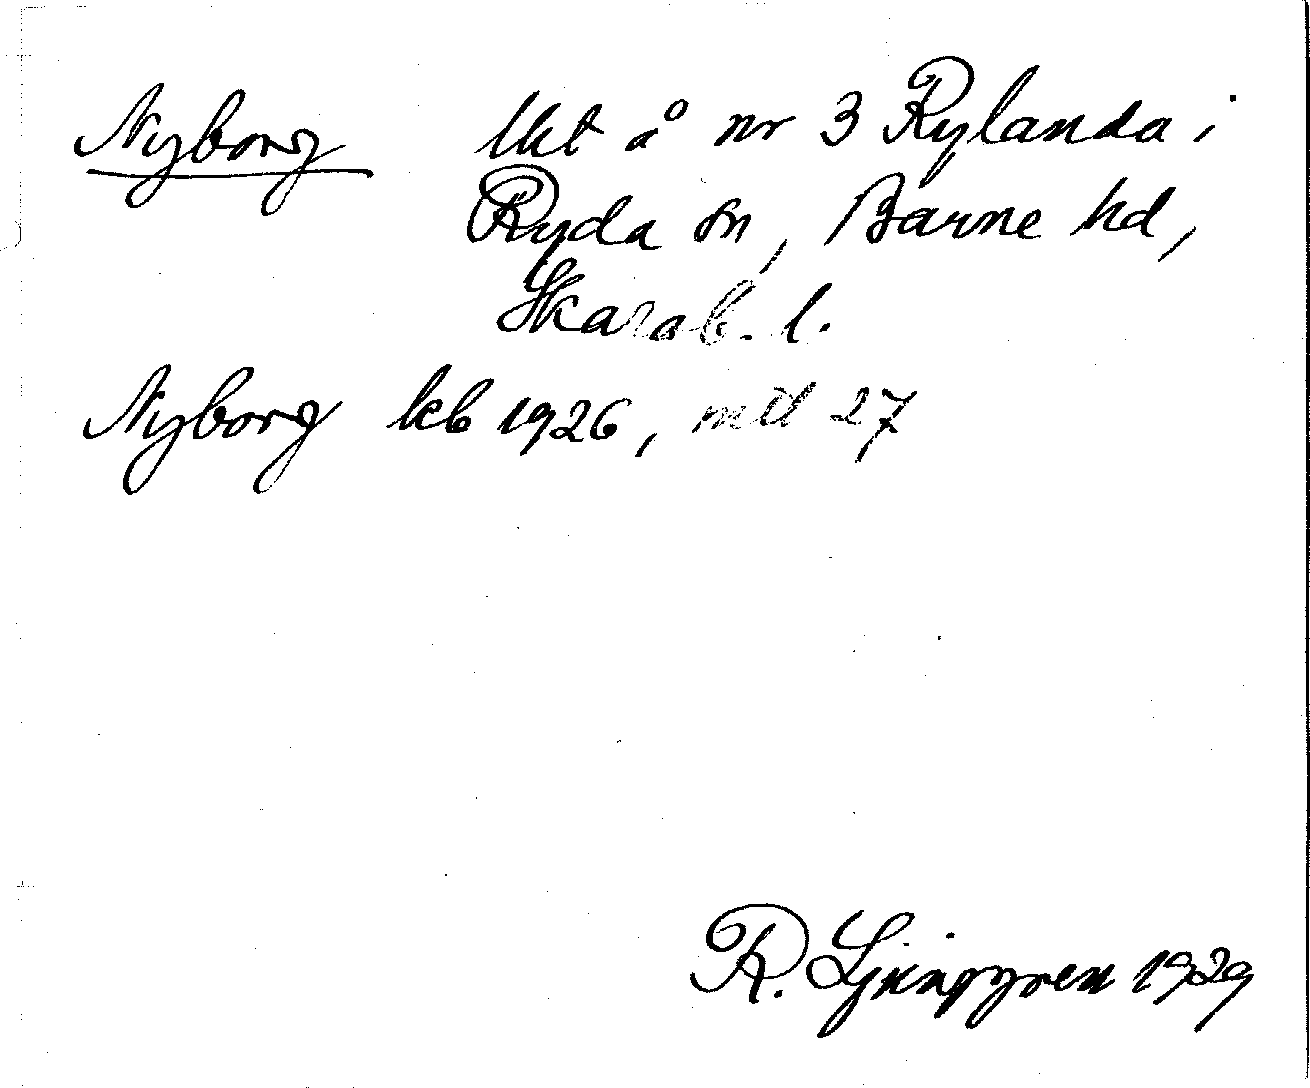 Nyborg lkt å nr 3 Rylanda i
Ryda sn, Barne hd,
Skarab. l.
Nyborg kb 1926, mtl 27
R. Ljunggren 1929